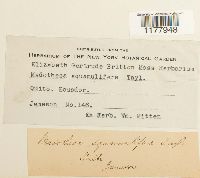 1177948
HERBARIUM OF THE NEW YORK BOTANICAL GARDEN
Elizabeth Gertrude Britton Moss Herbarium
Madotheca squamulifera Tayl.
Quito, Ecuador.
Jameson No. 146.
Ex Herb. Wm. Mitten
Madotheca squamulifera Tayl.
Quito
Jameson